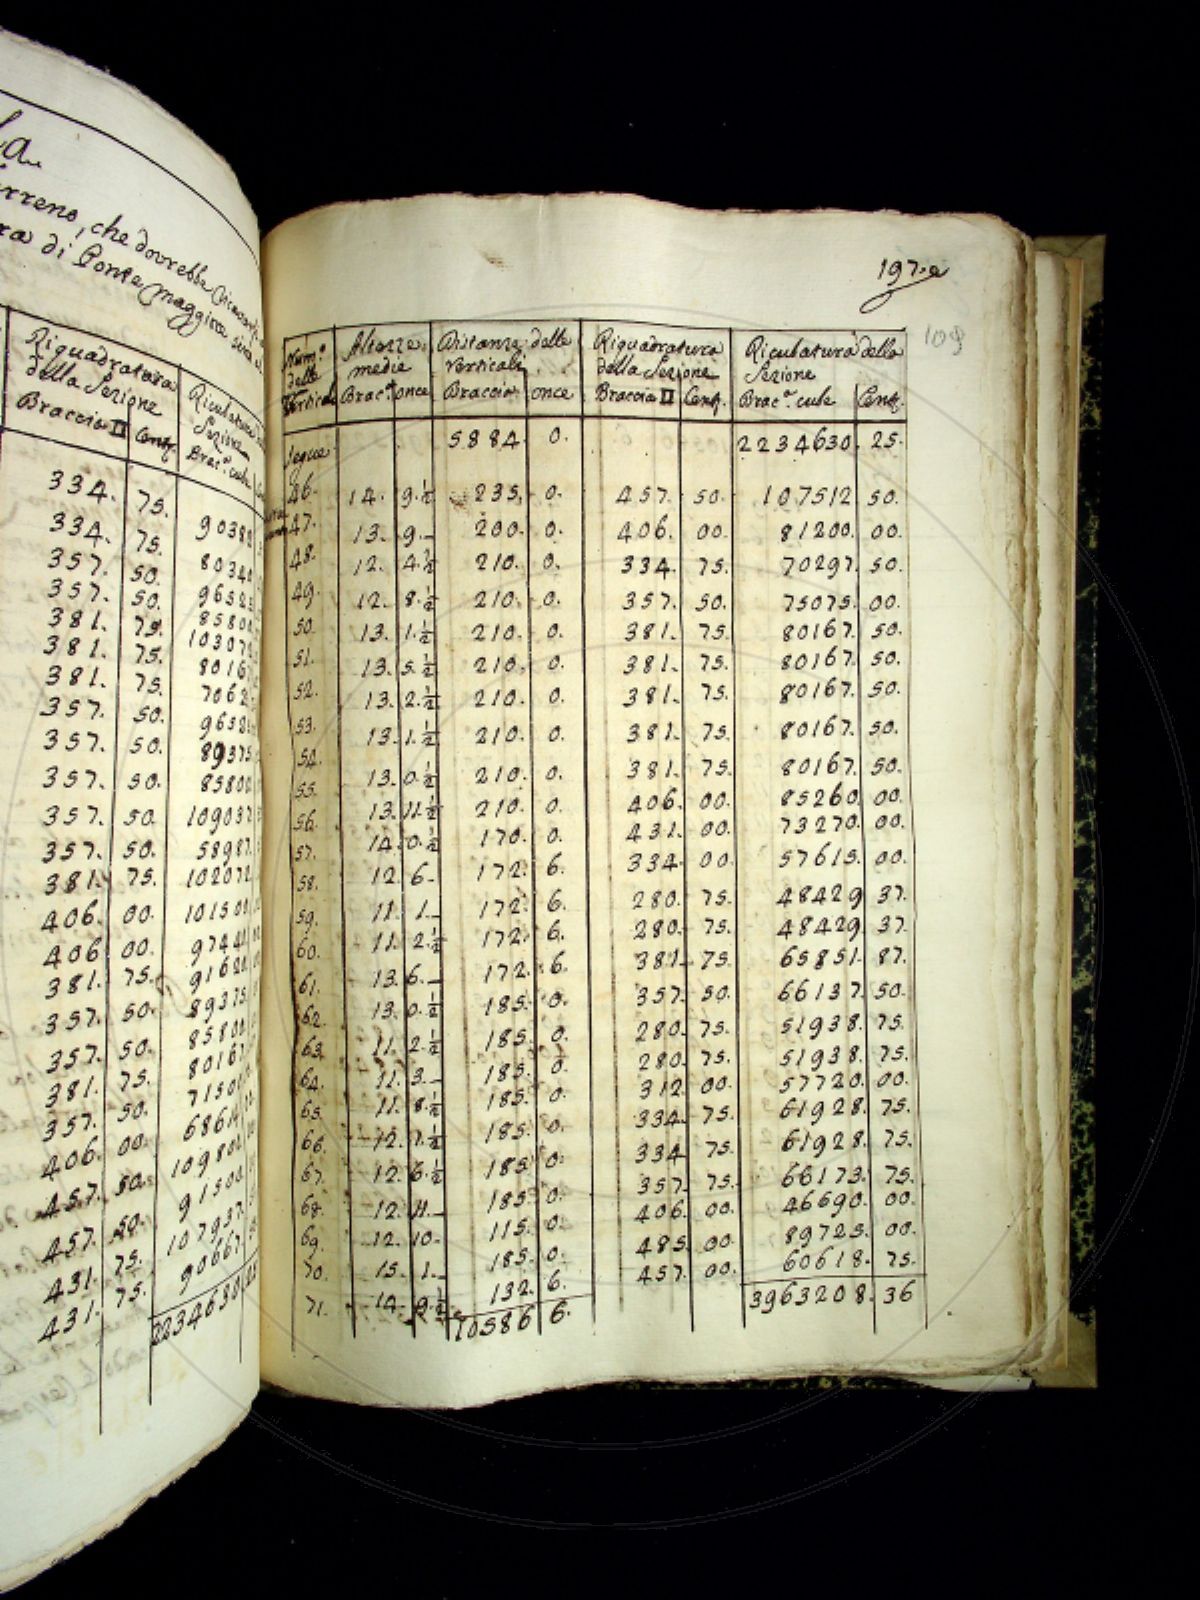 la
rreno, che dovrebbe
ra di Ponte maggiore sino al
Riquadratura
della Sezione
Braccia □ Cent.
Riculatura
Sezione
Brac.ª cube
334. 75. 90382
334. 75. 80340
357. 50. 96525
357. 50. 85800
381. 75. 103072
381. 75. 80167
381. 75. 7062
357. 50. 96525
357. 50. 89375
357. 50. 85800
357. 50. 109037
357. 50. 58987
381. 75. 102072
406. 00. 101500
406 00. 97441
381. 75. 91620
357. 50. 89375
357. 50. 85800
381. 75. 80167
357. 50. 71500
406. 00. 68614
457. 50. 109802
457. 50. 91500
431. 75. 107937
431. 75. 90667
2234630 25
197. e
109
Num.º delle Verticali
Altezze medie Brac.ª once
Distanze delle Verticali Braccia once
Riquadratura della Sezione Braccia □ Cent.
Riculatura della Sezione Brac.ª cube Cent.
Segue 5884. 0. 2234630. 25.
46. 14. 9.½ 235. 0. 457. 50. 107512 50.
47. 13. 9. 200. 0. 406. 00. 81200. 00.
48. 12. 4.½ 210. 0. 334. 75. 70297. 50.
49. 12. 8.½ 210. 0. 357. 50. 75075. 00.
50. 13. 1.½ 210. 0. 381. 75. 80167. 50.
51. 13. 5.½ 210. 0. 381. 75. 80167. 50.
52. 13. 2.½ 210. 0. 381. 75. 80167. 50.
53. 13. 1.½ 210. 0. 381. 75. 80167. 50.
54. 13. 0.½ 210. 0. 381. 75. 80167. 50.
55. 13. 11.½ 210. 0. 406. 00. 85260. 00.
56. 14. 0.½ 170. 0. 431. 00. 73270. 00.
57. 12. 6. 172. 6. 334. 00. 57615. 00.
58. 11. 1. 172. 6. 280. 75. 48429 37.
59. 11. 2.½ 172. 6. 280. 75. 48429. 37.
60. 13. 6. 172. 6. 381. 75. 65851. 87.
61. 13. 0.½ 185. 0. 357. 50. 66137. 50.
62. 11. 2.½ 185. 0. 280. 75. 51938. 75.
63. 11. 3. 185. 0. 280. 75. 51938. 75.
64. 11. 8.½ 185. 0. 312. 00. 57720. 00.
65. 12. 7.½ 185. 0. 334. 75. 61928. 75.
66. 12. 6.½ 185. 0. 334. 75. 61928. 75.
67. 12. 11. 185. 0. 357. 75. 66173. 75.
68. 12. 10. 115. 0. 406. 00. 46690. 00.
69. 15. 1. 185. 0. 485. 00. 89725. 00.
70. 14. 9.½ 132. 6. 457. 00. 60618. 75.
71. 10586 6. 3963208. 36